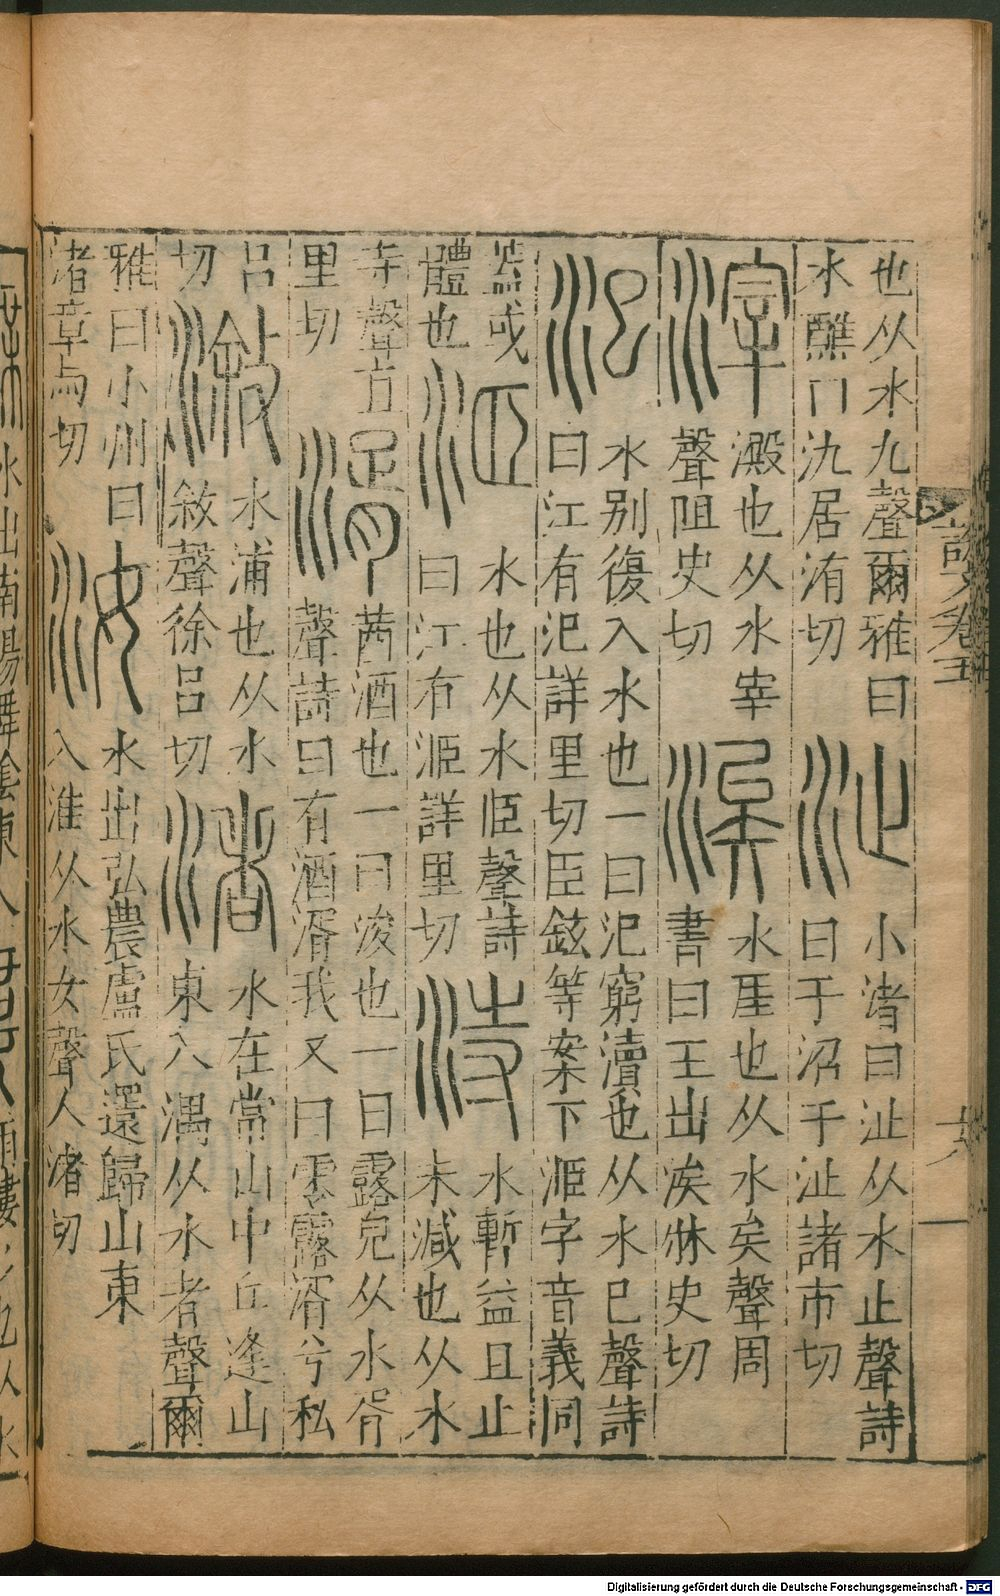 也从水九聲爾雅曰
水醮曰氿居洧切
沚
小渚曰沚从水止聲詩
曰于沼于沚諸市切
滓
澱也从水宰
聲阻史切
涘
水厓也从水矣聲周
書曰王出涘牀史切
汜
水別復入水也一曰汜窮瀆也从水巳聲詩
曰江有汜詳里切臣鉉等案下洍字音義同
蓋或
體也
洍
水也从水𦣞聲詩
曰江有洍詳里切
洔
水暫益且止
未減也从水
寺聲直
里切
湑
茜酒也一曰浚也一曰露皃从水胥
聲詩曰有酒湑我又曰零露湑兮私
呂
切
漵
水浦也从水
敘聲徐呂切
渚
水在常山中丘逢山
東入湡从水者聲爾
雅曰小州曰
渚章与切
汝
水出弘農盧氏還歸山東
入淮从水女聲人渚切
說文卷五
水出南陽舞陰東入
Digitalisierung gefördert durch die Deutsche Forschungsgemeinschaft - DFG